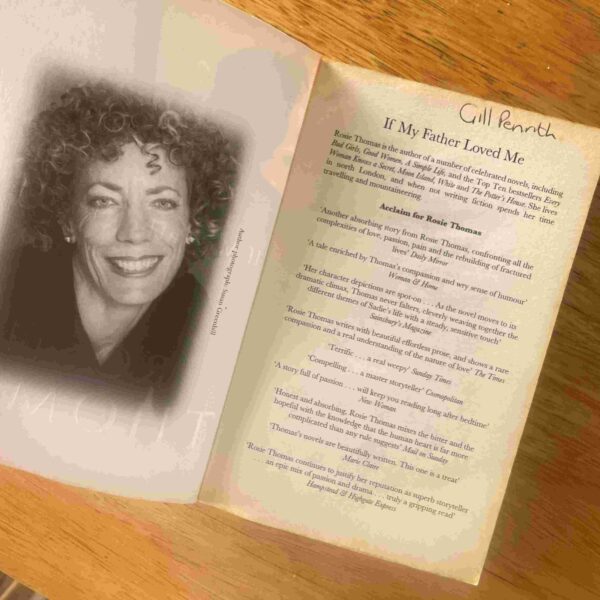 Author photograph: Susan Greenhill
Gill Penrith
If My Father Loved Me
Rosie Thomas is the author of a number of celebrated novels, including
Bad Girls, Good Women, A Simple Life, and the Top Ten bestsellers Every
Woman Knows a Secret, Moon Island, White and The Potter's House. She lives
in north London, and when not writing fiction spends her time
travelling and mountaineering.
Acclaim for Rosie Thomas
'Another absorbing story from Rosie Thomas, confronting all the
complexities of love, passion, pain and the rebuilding of fractured
lives' Daily Mirror
'A tale enriched by Thomas's compassion and wry sense of humour'
Woman & Home
'Her character depictions are spot-on . . . As the novel moves to its
dramatic climax, Thomas never falters, cleverly weaving together the
different themes of Sadie's life with a steady, sensitive touch'
Sainsbury's Magazine
'Rosie Thomas writes with beautiful effortless prose, and shows a rare
compassion and a real understanding of the nature of love' The Times
'Terrific . . . a real weepy' Sunday Times
'Compelling . . . a master storyteller' Cosmopolitan
'A story full of passion . . . will keep you reading long after bedtime'
New Woman
'Honest and absorbing, Rosie Thomas mixes the bitter and the
hopeful with the knowledge that the human heart is far more
complicated than any rule suggests' Mail on Sunday
'Thomas's novels are beautifully written. This one is a treat'
Marie Claire
'Rosie Thomas continues to justify her reputation as superb storyteller
. . . an epic mix of passion and drama . . . truly a gripping read'
Hampstead & Highgate Express